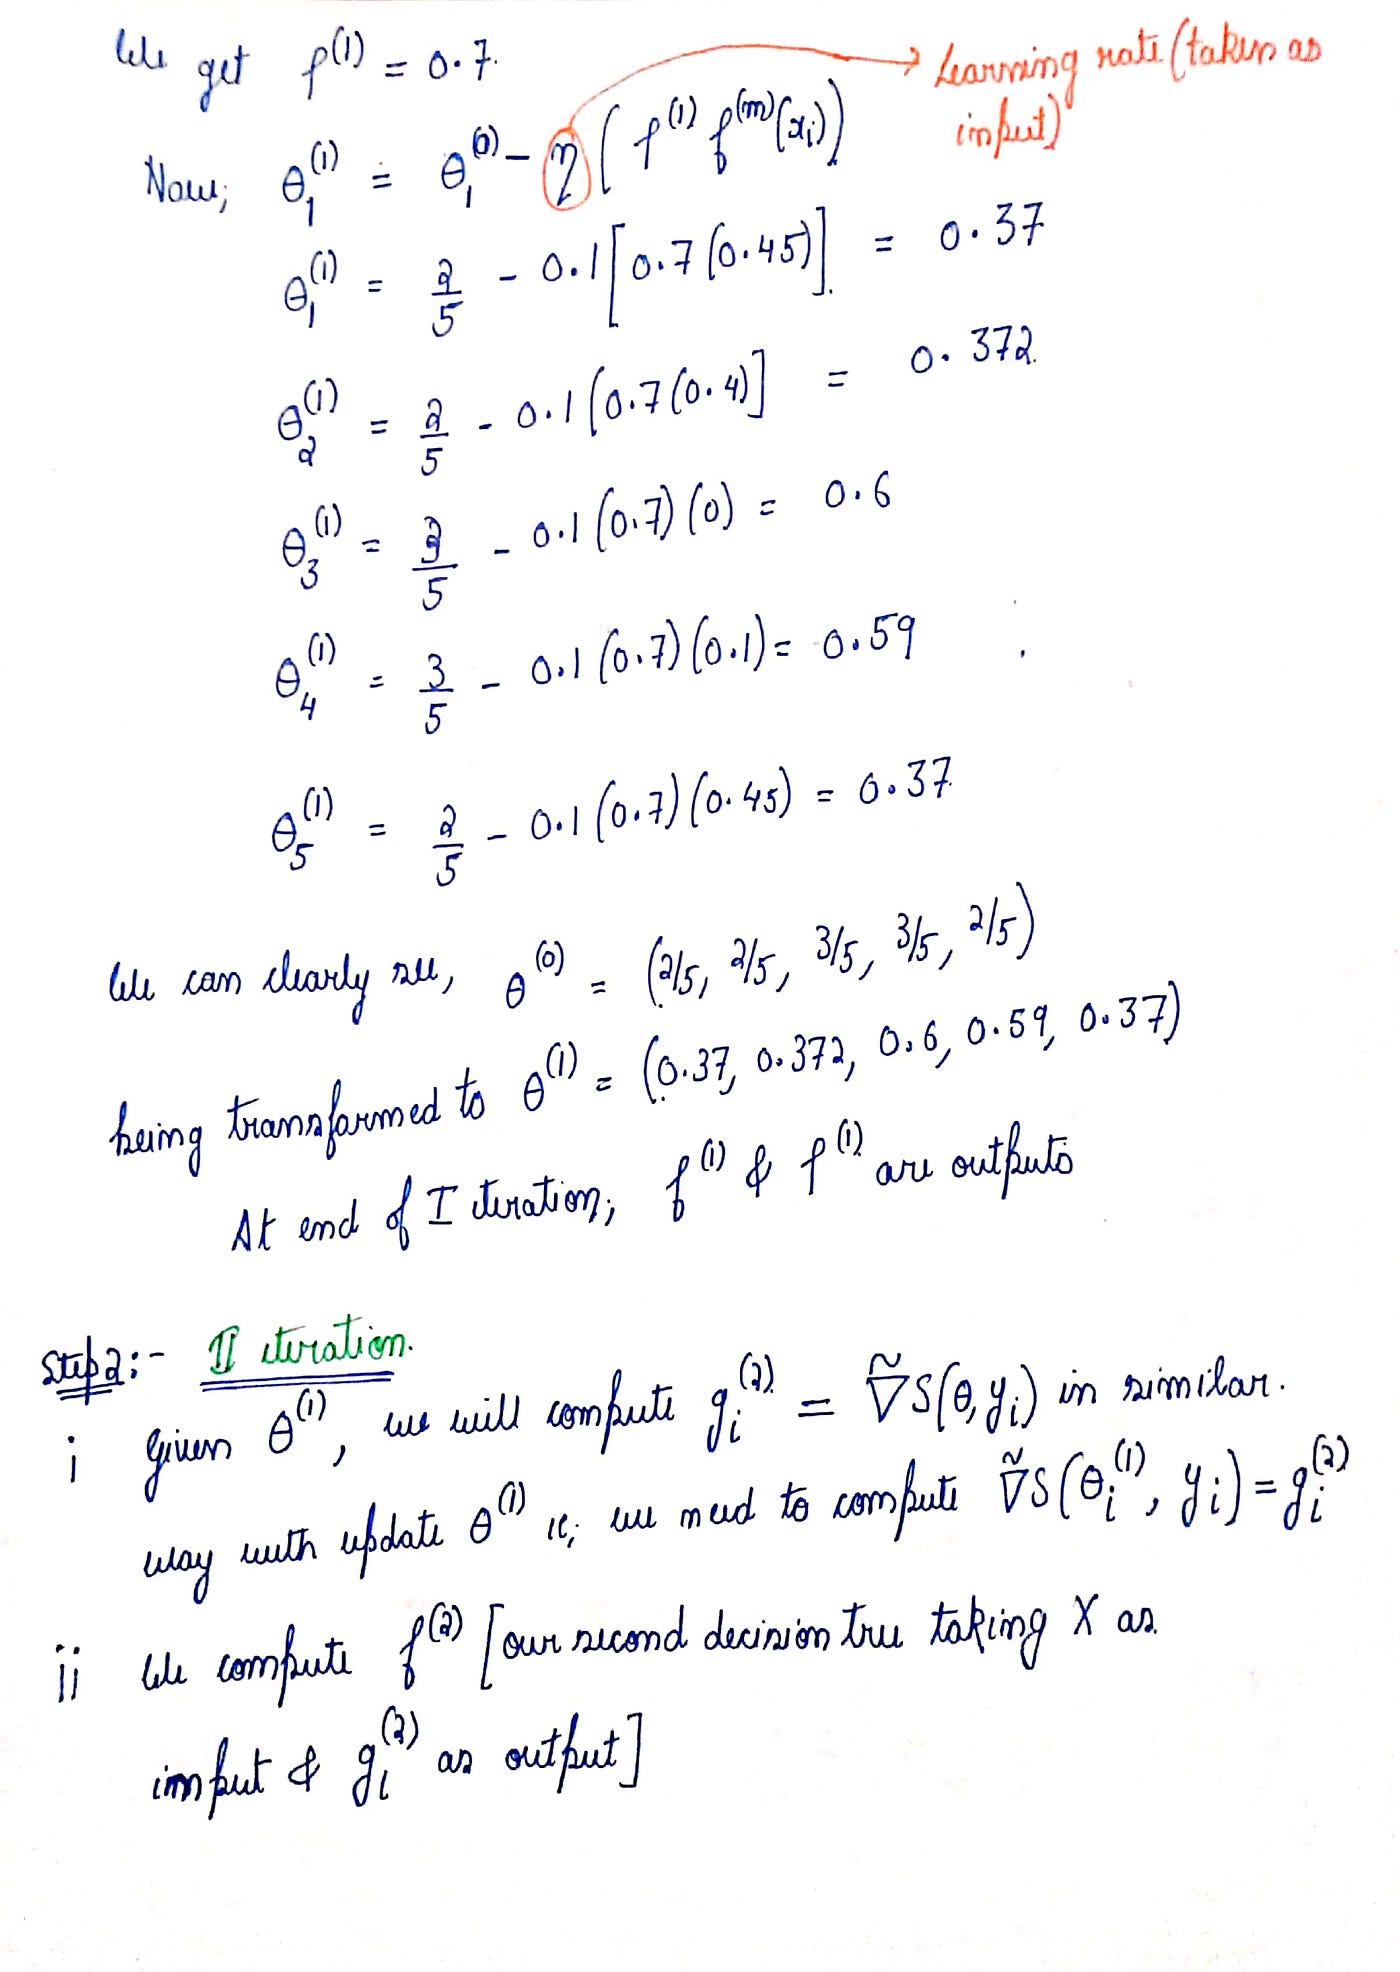 We get ρ^(1) = 0.7.
Learning rate (taken as input)
Now, θ₁^(1) = θ₁^(0) - η (ρ^(1) f^(m)(xᵢ))
θ₁^(1) = 2/5 - 0.1[0.7(0.45)] = 0.37
θ₂^(1) = 2/5 - 0.1(0.7(0.4)] = 0.372
θ₃^(1) = 3/5 - 0.1(0.7)(0) = 0.6
θ₄^(1) = 3/5 - 0.1(0.7)(0.1) = 0.59
θ₅^(1) = 2/5 - 0.1(0.7)(0.45) = 0.37
We can clearly see, θ^(0) = (2/5, 2/5, 3/5, 3/5, 2/5)
being transformed to θ^(1) = (0.37, 0.372, 0.6, 0.59, 0.37)
At end of I iteration, f^(1) & ρ^(1) are outputs
Step 2:- II iteration.
i Given θ^(1), we will compute gᵢ^(2) = ∇̃S(θ, yᵢ) in similar.
way with update θ^(1) ie, we need to compute ∇̃S(θᵢ^(1), yᵢ) = gᵢ^(2)
ii We compute f^(2) [our second decision tree taking X as
input & gᵢ^(2) as output]